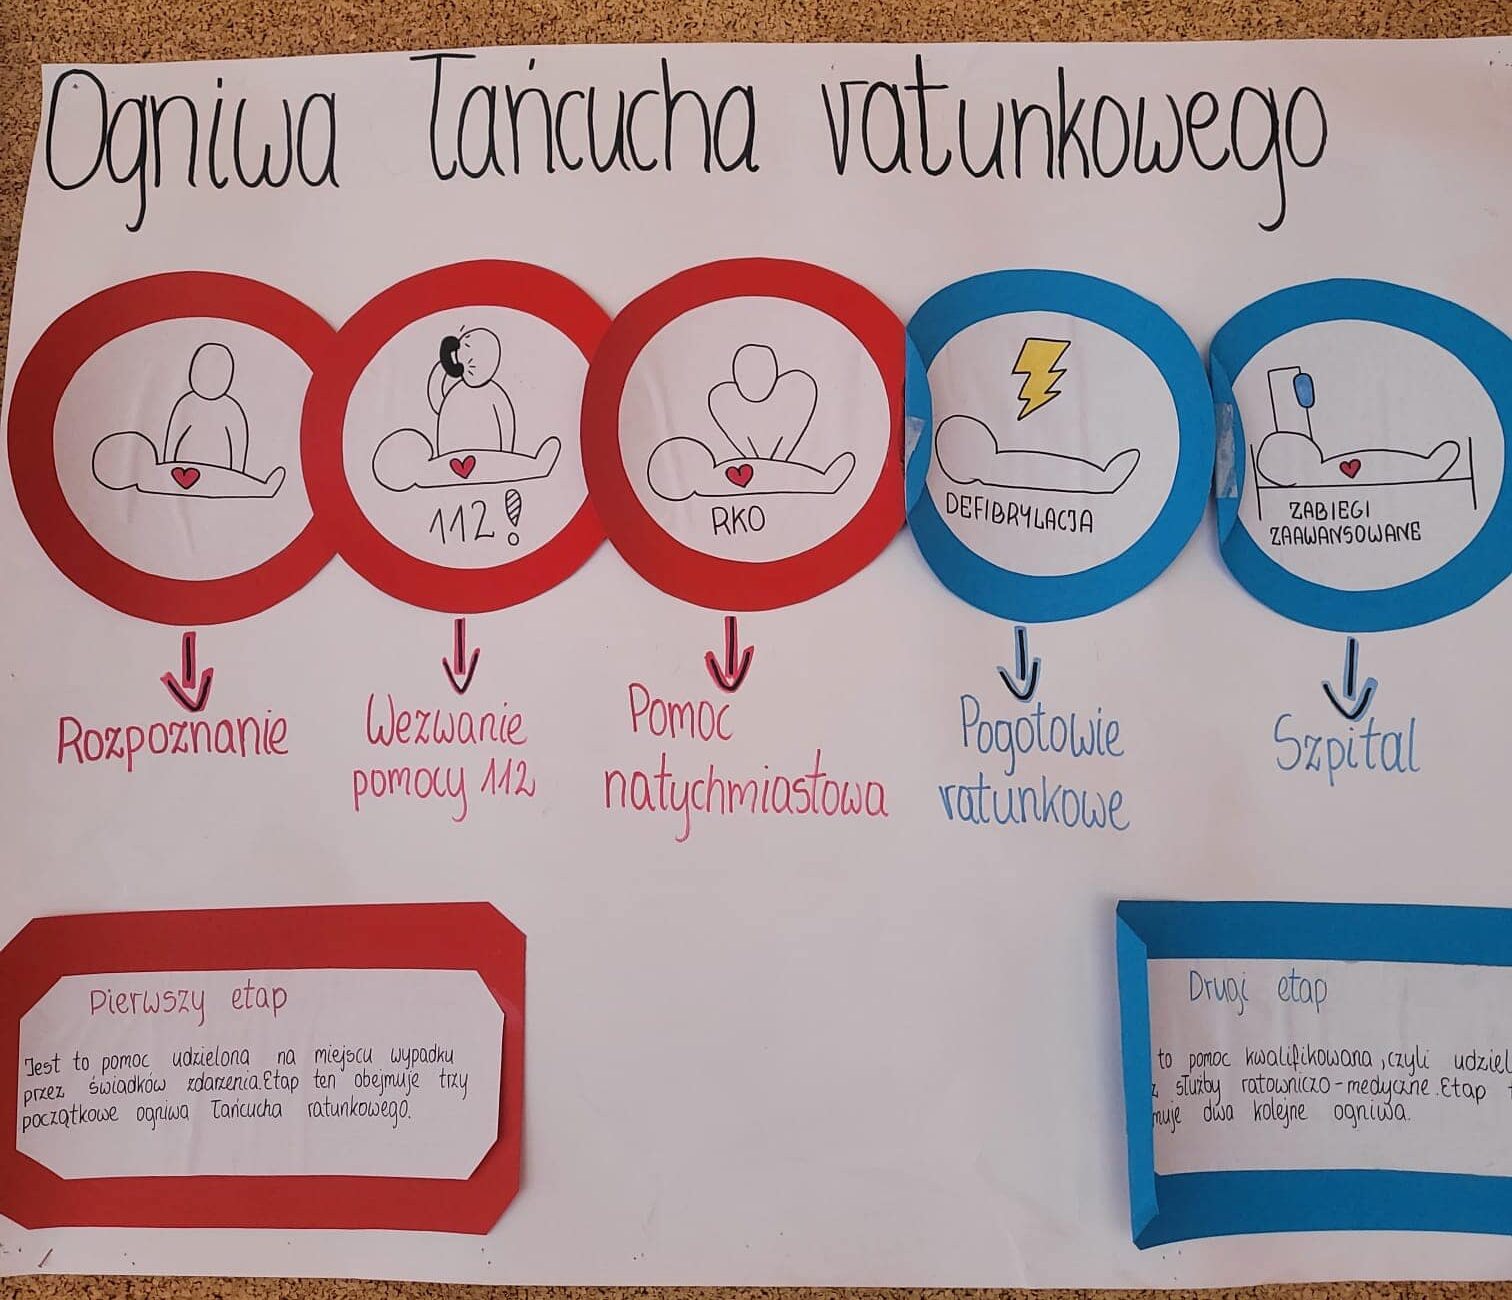 Ogniwa łańcucha ratunkowego
112!
RKO
DEFIBRYLACJA
ZABIEGI
ZAAWANSOWANE
Rozpoznanie
Wezwanie
pomocy 112
Pomoc
natychmiastowa
Pogotowie
ratunkowe
Szpital
Pierwszy etap
Jest to pomoc udzielona na miejscu wypadku
przez świadków zdarzenia. Etap ten obejmuje trzy
początkowe ogniwa łańcucha ratunkowego.
Drugi etap
to pomoc kwalifikowana, czyli udziel
z służby ratowniczo-medyczne. Etap t
muje dwa kolejne ogniwa.